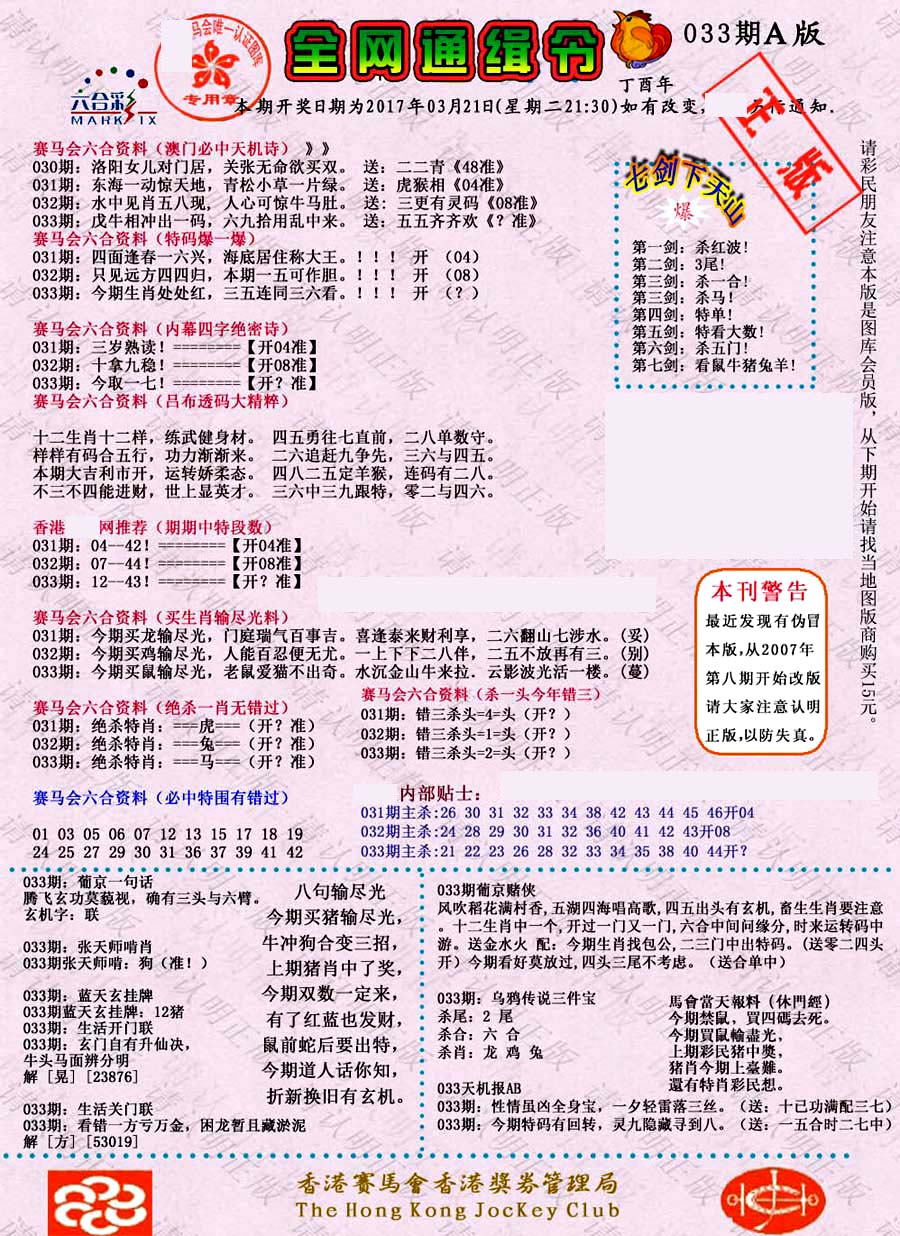 全网通缉令
033期A版
丁酉年
马会唯一认证图库
专用章
六合彩
MARK SIX
本期开奖日期为2017年03月21日(星期二21:30)如有改变, 另作通知.
正版
赛马会六合资料（澳门必中天机诗）》》
030期：洛阳女儿对门居，关张无命欲买双。 送：二二青《48准》
031期：东海一动惊天地，青松小草一片绿。 送：虎猴相《04准》
032期：水中见肖五八现，人心可惊牛马肚。 送：三更有灵码《08准》
033期：戊牛相冲出一码，六九拾用乱中来。 送：五五齐齐欢《？准》
赛马会六合资料（特码爆一爆）
031期：四面逢春一六兴，海底居住称大王。！！！ 开 （04）
032期：只见远方四四归，本期一五可作胆。！！！ 开 （08）
033期：今期生肖处处红，三五连同三六看。！！！ 开 （？）
赛马会六合资料（内幕四字绝密诗）
031期：三岁熟读！========【开04准】
032期：十拿九稳！========【开08准】
033期：今取一七！========【开？准】
赛马会六合资料（吕布透码大精粹）
十二生肖十二样，练武健身材。 四五勇往七直前，二八单数守。
样样有码合五行，功力渐渐来。 二六追赶九争先，三六与四五。
本期大吉利市开，运转娇柔态。 四八二五定羊猴，连码有二八。
不三不四能进财，世上显英才。 三六中三九跟特，零二与四六。
香港 网推荐（期期中特段数）
031期：04--42！========【开04准】
032期：07--44！========【开08准】
033期：12--43！========【开？准】
赛马会六合资料（买生肖输尽光料）
031期：今期买龙输尽光，门庭瑞气百事吉。喜逢泰来财利享，二六翻山七涉水。(妥)
032期：今期买鸡输尽光，人能百忍便无尤。一上下下二八伴，二五不放再有三。(别)
033期：今期买鼠输尽光，老鼠爱猫不出奇。水沉金山牛来拉．云影波光活一楼。(蔓)
赛马会六合资料（绝杀一肖无错过）
031期：绝杀特肖：===虎===（开？准）
032期：绝杀特肖：===兔===（开？准）
033期：绝杀特肖：===马===（开？准）
赛马会六合资料（杀一头今年错三）
031期：错三杀头=4=头（开？）
032期：错三杀头=1=头（开？）
033期：错三杀头=2=头（开？）
赛马会六合资料（必中特围有错过）
01 03 05 06 07 12 13 15 17 18 19
24 25 27 29 30 31 36 37 39 41 42
内部贴士：
031期主杀:26 30 31 32 33 34 38 42 43 44 45 46开04
032期主杀:24 28 29 30 31 32 36 40 41 42 43开08
033期主杀:21 22 23 26 28 32 33 34 35 38 40 44开?
七剑下天山
爆
第一剑：杀红波！
第二剑：3尾！
第三剑：杀一合！
第三剑：杀马！
第四剑：特单！
第五剑：特看大数！
第六剑：杀五门！
第七剑：看鼠牛猪兔羊！
请彩民朋友注意本版是图库会员版，从下期开始请找当地图版商购买15元。
本刊警告
最近发现有伪冒
本版,从2007年
第八期开始改版
请大家注意认明
正版,以防失真。
033期：葡京一句话
腾飞玄功莫藐视，确有三头与六臂。
玄机字：联
033期：张天师啃肖
033期张天师啃：狗（准！）
033期：蓝天玄挂牌
033期蓝天玄挂牌：12猪
033期：生活开门联
033期：玄门自有升仙决，
牛头马面辨分明
解［晃］[23876]
033期：生活关门联
033期：看错一方亏万金，困龙暂且藏淤泥
解［方］[53019]
八句输尽光
今期买猪输尽光，
牛冲狗合变三招，
上期猪肖中了奖，
今期双数一定来，
有了红蓝也发财，
鼠前蛇后要出特，
今期道人话你知，
折新换旧有玄机。
033期葡京赌侠
风吹稻花满村香，五湖四海唱高歌，四五出头有玄机，畜生生肖要注意
。十二生肖中一个，开过一门又一门，六合中间问缘分，时来运转码中
游。送金水火 配：今期生肖找包公，二三门中出特码。(送零二四头
开）今期看好莫放过，四头三尾不考虑。（送合单中）
033期：乌鸦传说三件宝
杀尾：2 尾
杀合：六 合
杀肖：龙 鸡 兔
馬會當天報料（休門經）
今期禁鼠，買四碼去死。
今期買鼠輸盡光，
上期彩民猪中獎，
猪肖今期上臺難。
還有特肖彩民想。
033天机报AB
033期：性情虽凶全身宝，一夕轻雷落三丝。（送：十已功满配三七）
033期：今期特码有回转，灵九隐藏寻到八。（送：一五合时二七中）
香港賽馬會香港獎券管理局
The Hong Kong JocKey Club